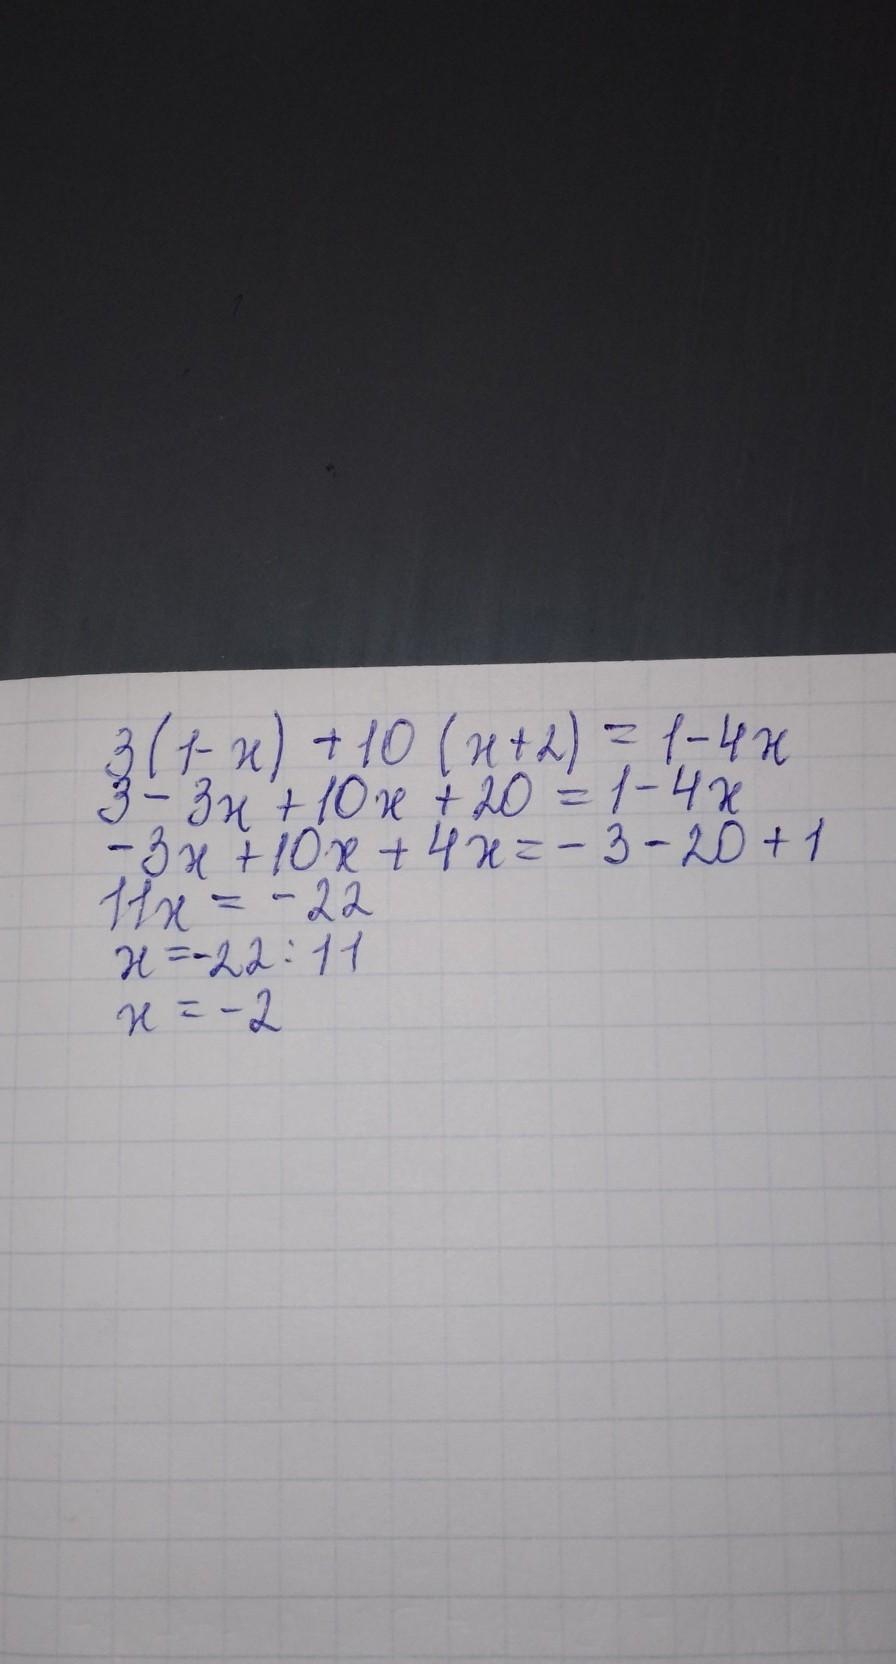 3(1-x) +10 (x+2) = 1-4x
3-3x+10x+20=1-4x
-3x+10x+4x=-3-20+1
11x = -22
x=-22:11
x = -2